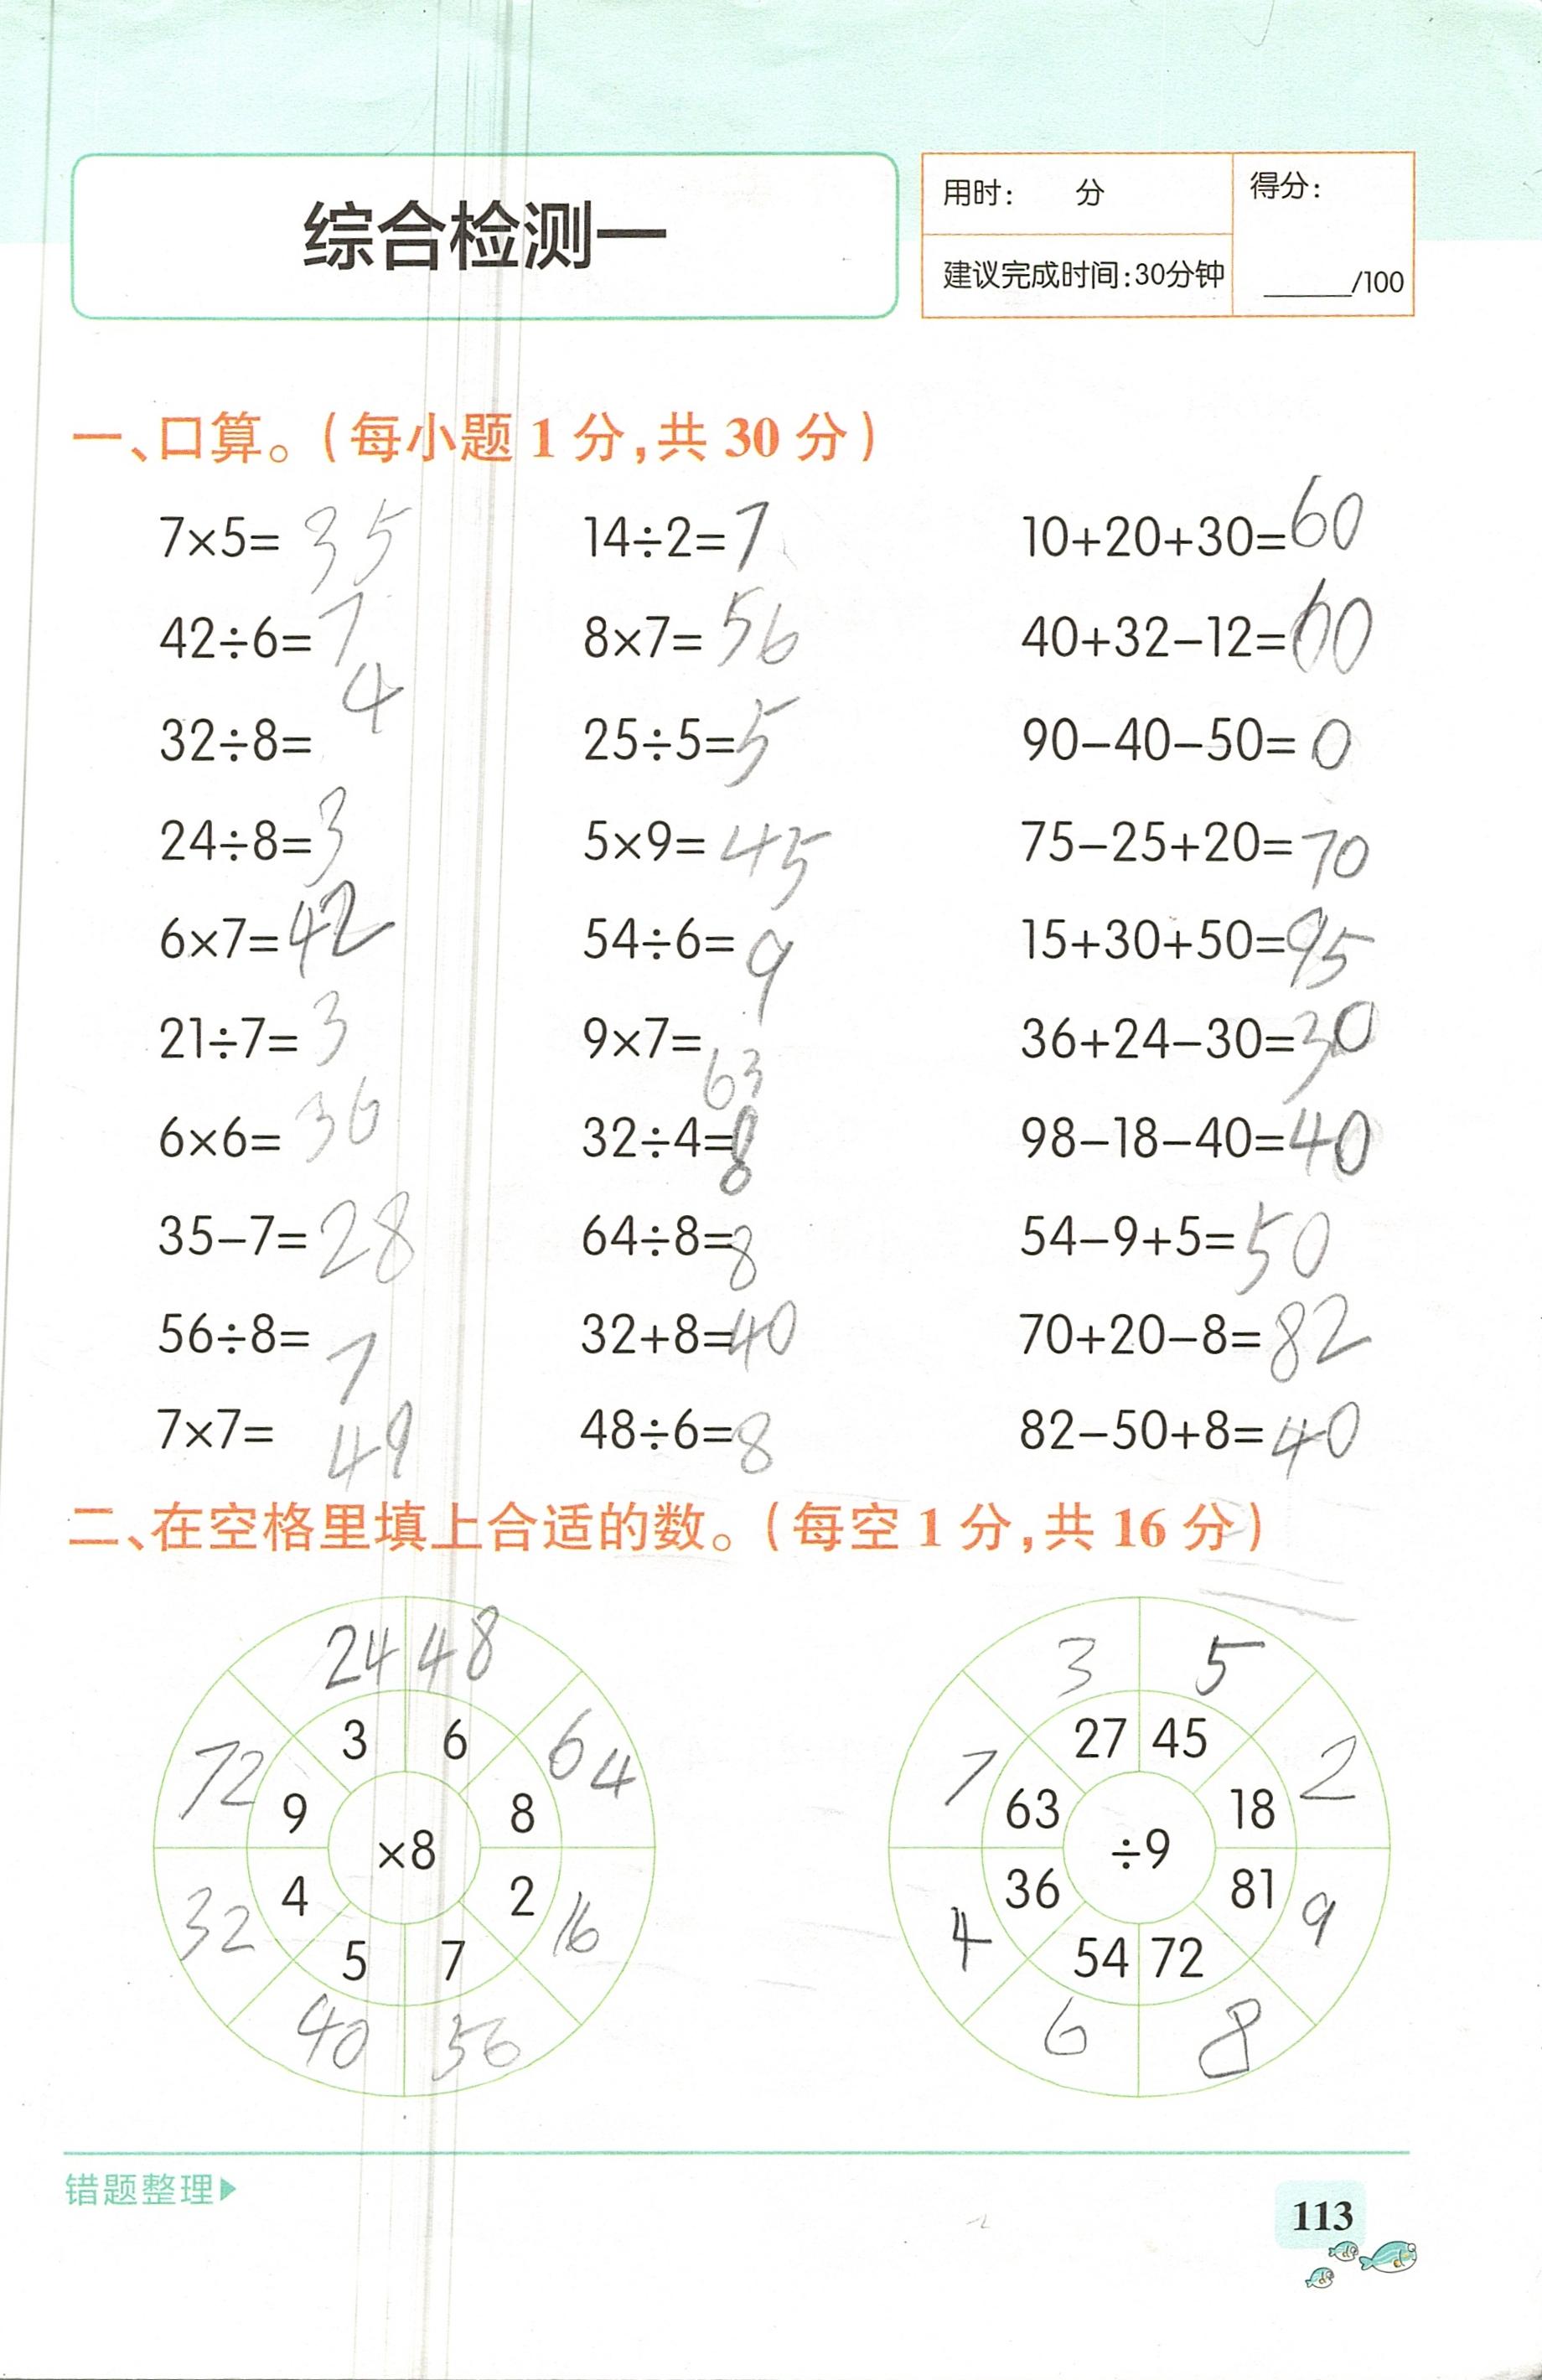 综合检测一
用时： 分
得分：
建议完成时间：30分钟
/100
一、口算。（每小题1分，共30分）
7×5=35 14÷2=7 10+20+30=60
42÷6=7 8×7=56 40+32−12=60
32÷8=4 25÷5=5 90−40−50=0
24÷8=3 5×9=45 75−25+20=70
6×7=42 54÷6=9 15+30+50=95
21÷7=3 9×7=63 36+24−30=30
6×6=36 32÷4=8 98−18−40=40
35−7=28 64÷8=8 54−9+5=50
56÷8=7 32+8=40 70+20−8=82
7×7=49 48÷6=8 82−50+8=40
二、在空格里填上合适的数。（每空1分，共16分）
24 48 3 5
3 6 27 45
72 64 7 2
9 8 63 18
×8 ÷9
4 2 36 81
32 16 4 9
5 7 54 72
40 56 6 8
错题整理
113